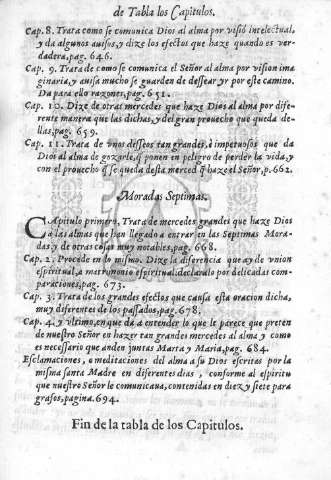 de Tabla los Capitulos.
Cap. 8. Trata como se comunica Dios al alma por visiõ intelectual,
y da algunos auisos, y dize los efectos que haze quando es ver-
dadera, pag. 646.
Cap. 9. Trata de como se comunica el Señor al alma por vision ima
ginaria, y auisa mucho se guarden de dessear yr por este camino.
Da para ello razones, pag. 651.
Cap. 10. Dize de otras mercedes que haze Dios al alma por dife-
rente manera que las dichas, y del gran prouecho que queda de-
llas, pag. 659.
Cap. 11. Trata de vnos desseos tan grandes, è impetuosos que da
Dios al alma de gozarle, q̃ ponen en peligro de perder la vida, y
con el prouecho q̃ se queda desta merced q̃ haze el Señor, p. 662.
Moradas Septimas.
CApitulo primero, Trata de mercedes grandes que haze Dios
a las almas que han llegado a entrar en las Septimas Mora-
das, y de otras cosas muy notables, pag. 668.
Cap. 2. Procede en lo mismo. Dize la diferencia que ay de vnion
espiritual, a matrimonio espiritual: declaralo por delicadas com-
paraciones, pag. 673.
Cap. 3. Trata de los grandes efectos que causa esta oracion dicha,
muy diferentes de los passados, pag. 678.
Cap. 4. y vltimo, en que da a entender lo que le parece que preten
de nuestro Señor en hazer tan grandes mercedes al alma y como
es necessario que anden juntas Marta y Maria, pag. 684.
Esclamaciones, o meditaciones del alma a su Dios escritas por la
misma santa Madre en diferentes dias, conforme al espiritu
que nuestro Señor le comunicaua, contenidas en diez y siete para
grafos, pagina. 694.
Fin de la tabla de los Capitulos.